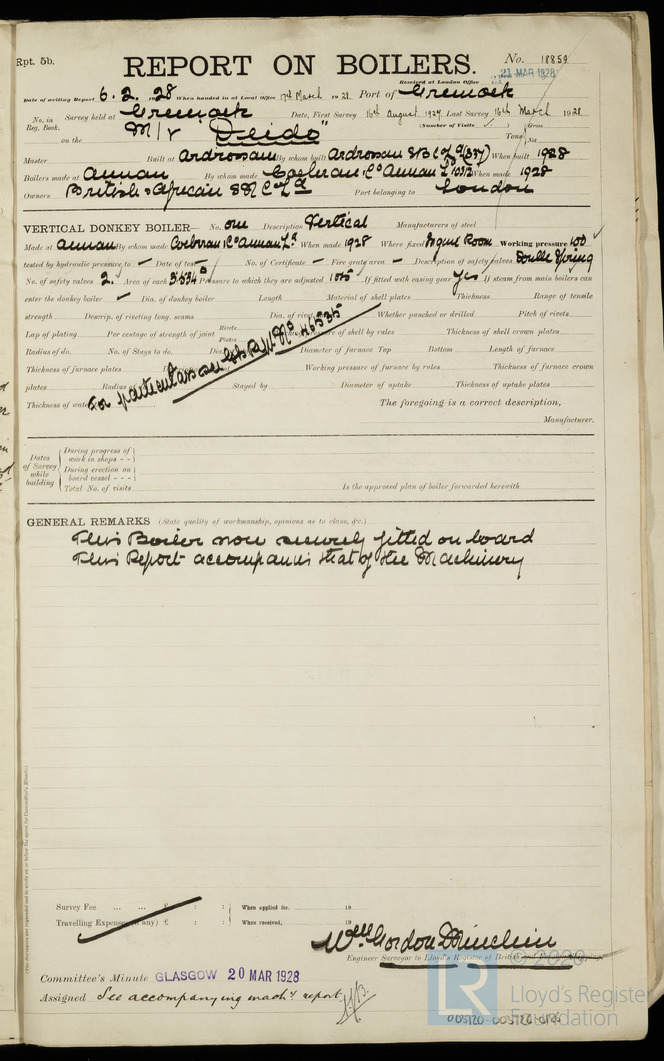 Rpt. 5b.
REPORT ON BOILERS.
No. 18859
Received at London Office 21 MAR 1928
Date of writing Report 6.2.1928 When handed in at Local Office 17th March 1928 Port of Greenock
No. in Survey held at Greenock Date, First Survey 16th August 1927 Last Survey 16th March 1928
Reg. Book. (Number of Visits )
on the M/V "Deido" Tons Gross Net
Master Built at Ardrossan By whom built Ardrossan When built 1928
Boilers made at Annan By whom made Cochran & Co Annan Ld When made 1928
Owners British & African S N Co Ld Port belonging to London
VERTICAL DONKEY BOILER— No. one Description Vertical Manufacturers of steel
Made at Annan By whom made Cochran & Co Annan Ld When made 1928 Where fixed Engine Room Working pressure 100
tested by hydraulic pressure to Date of test No. of Certificate Fire grate area Description of safety valves Double Spring
No. of safety valves 2. Area of each Pressure to which they are adjusted 105 If fitted with easing gear yes If steam from main boilers can
enter the donkey boiler Dia. of donkey boiler Length Material of shell plates Thickness Range of tensile
strength Descrip. of riveting long. seams Dia. of rivet Whether punched or drilled Pitch of rivets
Lap of plating Per centage of strength of joint Rivets Plates of shell by rules Thickness of shell crown plates
Radius of do. No. of Stays to do. Dia. Diameter of furnace Top Bottom Length of furnace
Thickness of furnace plates Working pressure of furnace by rules Thickness of furnace crown
plates Radius of Stayed by Diameter of uptake Thickness of uptake plates
Thickness of water The foregoing is a correct description,
Manufacturer.
For particulars see No. 46535
Dates of Survey while building
During progress of work in shops - -
During erection on board vessel - - -
Total No. of visits Is the approved plan of boiler forwarded herewith
GENERAL REMARKS (State quality of workmanship, opinions as to class, &c.)
This Boiler now securely fitted on board
This Report accompanies that of the Machinery
Survey Fee ... ... £ : : When applied for, 19
Travelling Expenses (if any) £ : : When received, 19
Wm Gordon Minchin
Engineer Surveyor to Lloyd's Register of British
Committee's Minute GLASGOW 20 MAR 1928
Assigned See accompanying machy report
© 2020
LR Lloyd's Register Foundation